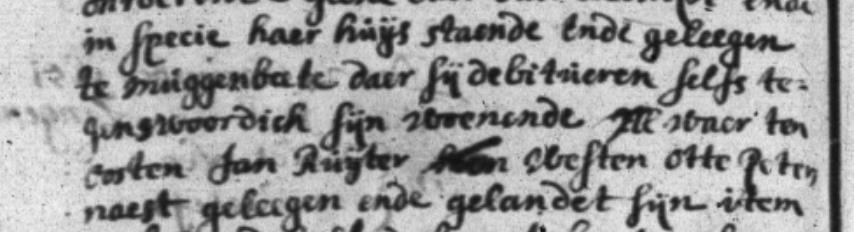 in specie haer huijs staende ende geleegen
te muggenbeete daer sij debitrieren selfs te-
genswoordich sijn woenende All waer ten
oosten Jan Ruijter ten Westen Otte Peters
naest geleegen ende gelandet sijn item